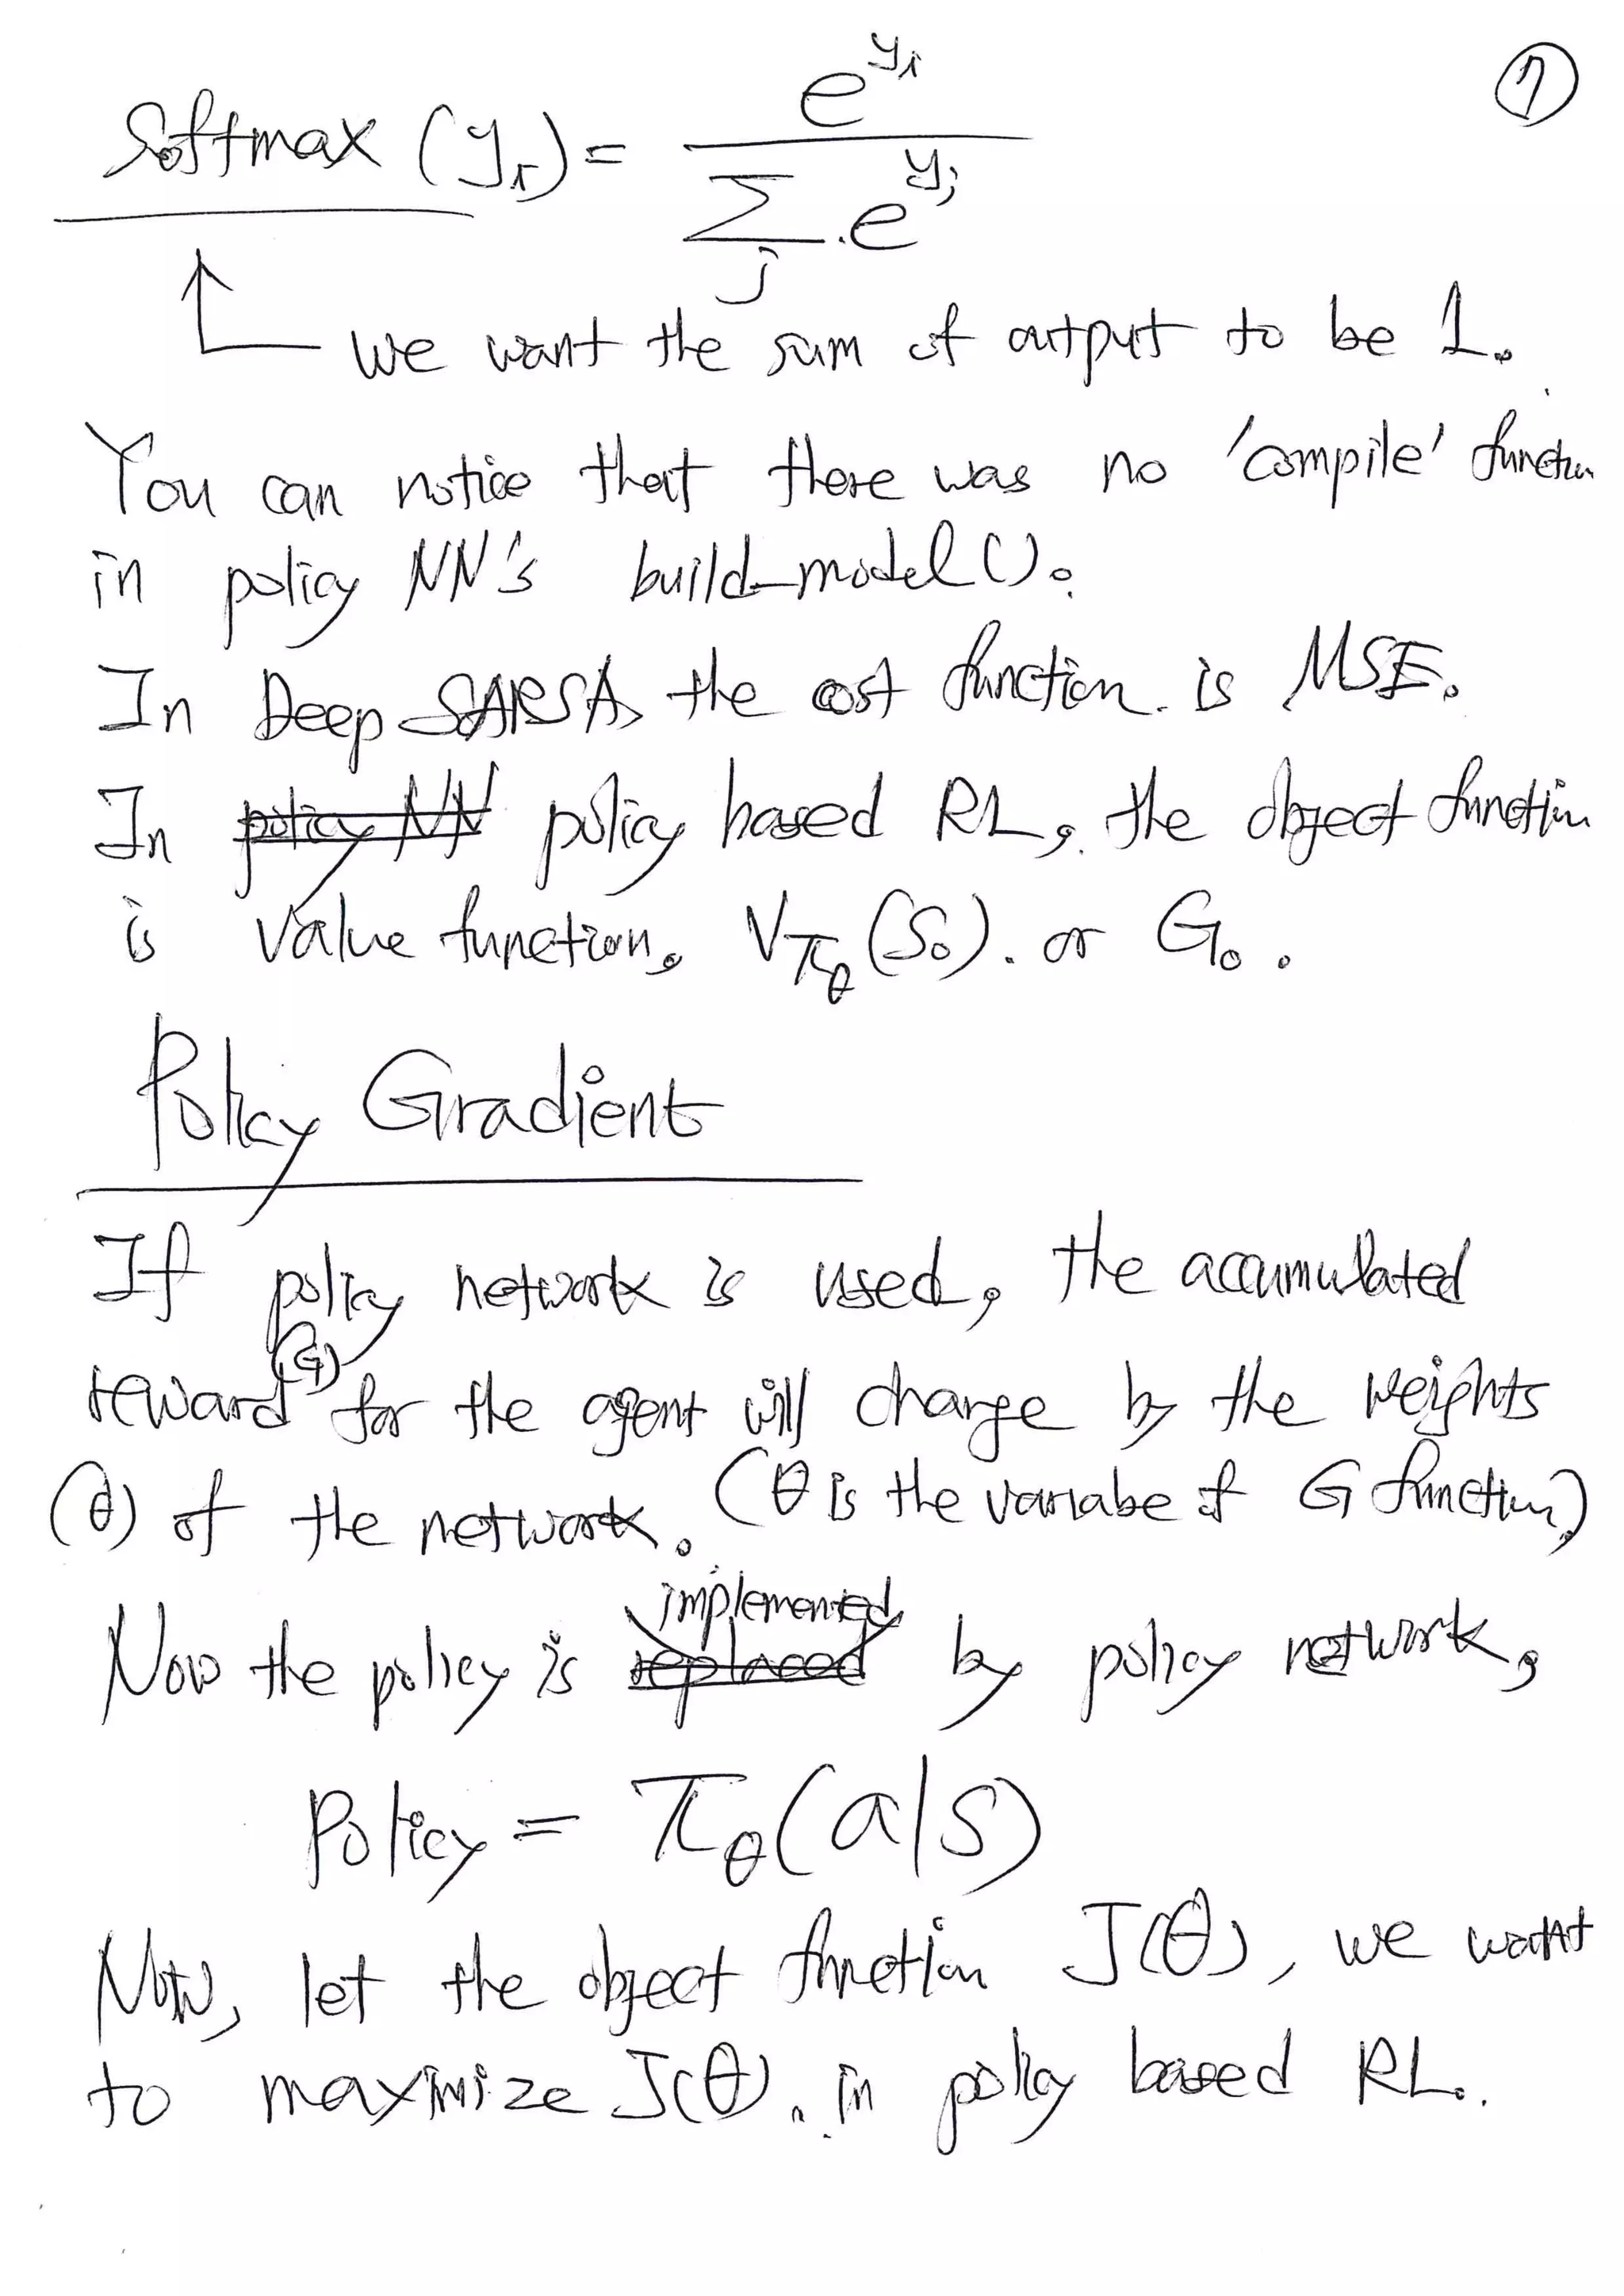 ⑦
Softmax (yᵢ) = e^{yᵢ} / Σ_j e^{yⱼ}
we want the sum of output to be 1.
You can notice that there was no 'compile' function
in policy NN's build_model().
In Deep SARSA, the cost function is MSE.
In ~~policy NN~~ policy based RL, the object function
is value function, V_{π_θ}(S₀). or G₀.
Policy Gradient
If policy network is used, the accumulated
reward (G) for the agent will change by the weights
(θ) of the network. (θ is the variabe of G function)
Now the policy is ~~replaced~~ implemented by policy network,
Policy = π_θ(a|s)
Now, let the object function J(θ), we want
to maximize J(θ). in policy based RL.